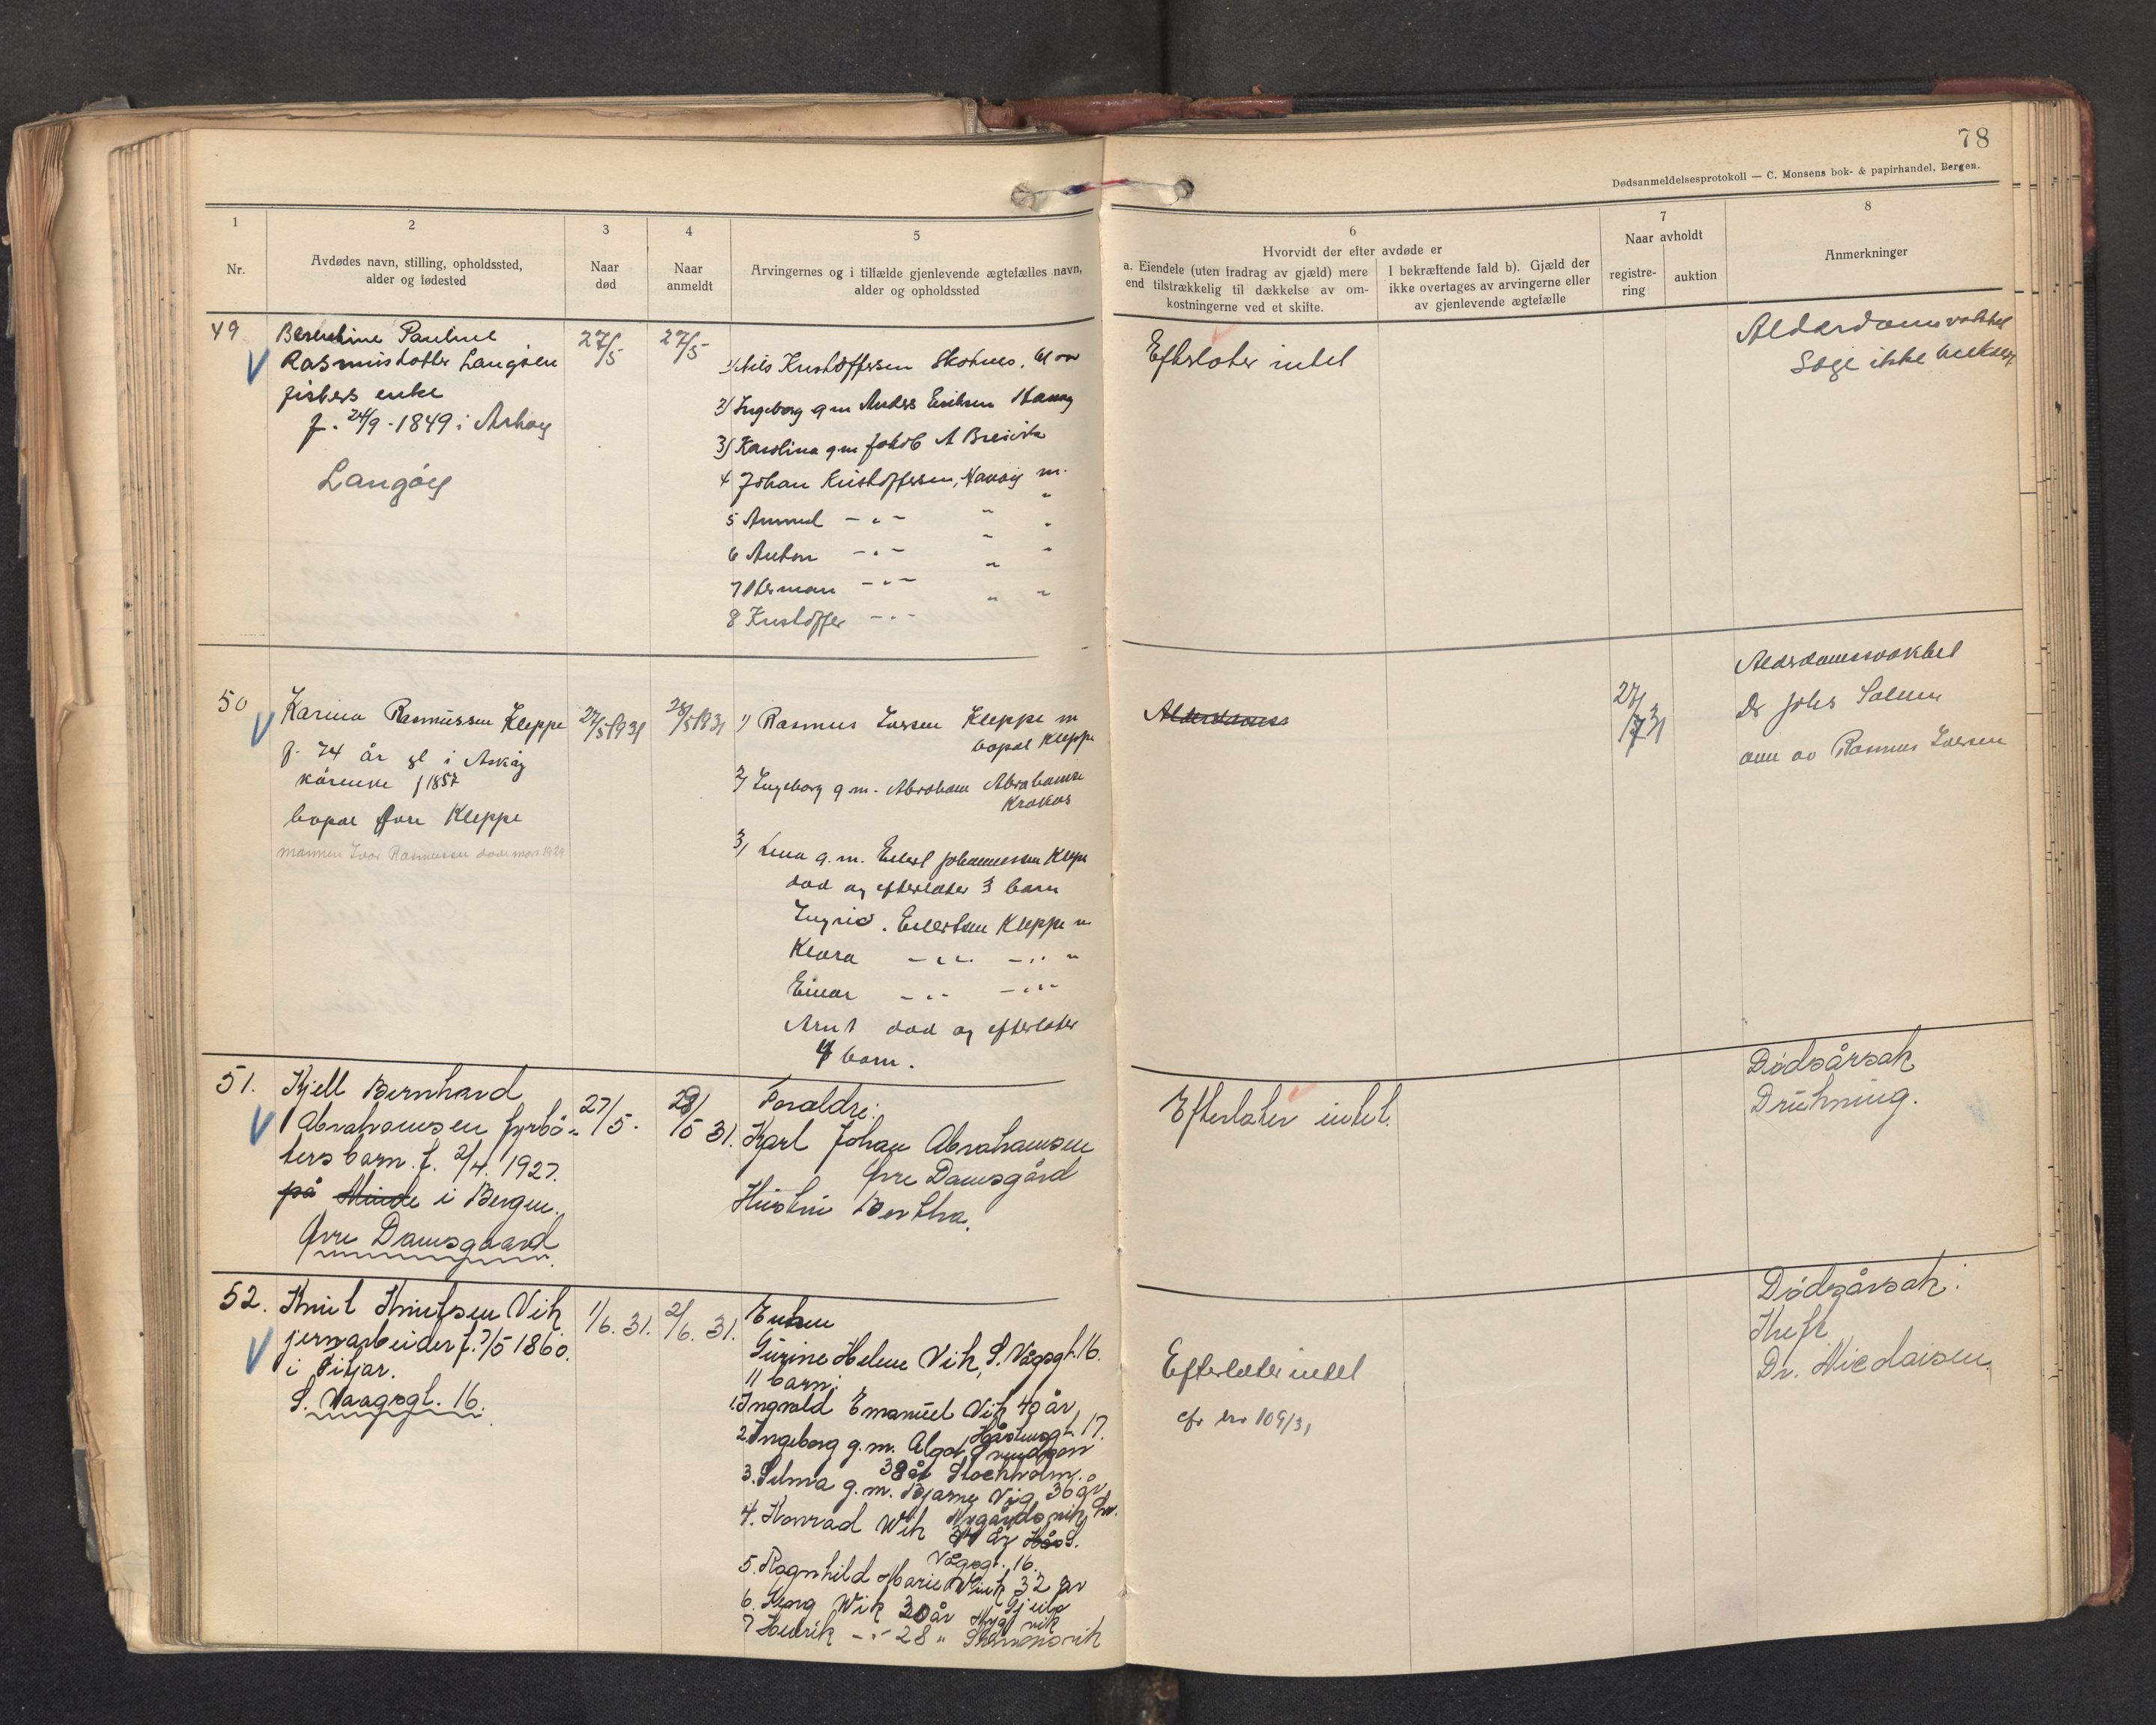 78
Dødsanmeldelsesprotokoll — C. Monsens bok- & papirhandel, Bergen.
1
Nr.
2
Avdødes navn, stilling, opholdssted,
alder og fødested
3
Naar
død
4
Naar
anmeldt
5
Arvingernes og i tilfælde gjenlevende ægtefælles navn,
alder og opholdssted
6
Hvorvidt der efter avdøde er
a. Eiendele (uten fradrag av gjæld) mere
end tilstrækkelig til dækkelse av om-
kostningerne ved et skifte.
I bekræftende fald b). Gjæld der
ikke overtages av arvingerne eller
av gjenlevende ægtefælle
7
Naar avholdt
registre-
ring
auktion
8
Anmerkninger
49
Berentine Pauline
Rasmusdatter Langøen
fiskers enke
f. 24/9 - 1849 i Askøy
Langöy
27/5
27/5
1/ Nils Kristoffersen Skotnes,
2/ Ingeborg g m Anders Eriksen
3/ Karolina g m Jakob A Breivik
4 Johan Kristoffersen, Hanøy m.
5 Amund - " - " "
6 Anton - " - " "
7 Herman - " - " "
8 Kristoffer - " - " "
Efterlater intet
Alderdomsvakkel
Læge ikke
50
Karina Rasmussen Kleppe
f. 74 år gl i Askøy
kårenke f 1857
bopæl Øvre Kleppe
mannen Ivar Rasmussen døde mars 1929
27/5 1931
28/5 1931
1) Rasmus Iversen Kleppe m
bopæl Kleppe
2/ Ingeborg g m. Abraham Abrahamsen
Krokås
3/ Lena g. m. Eilert Johannessen Kleppe
død og efterlater 3 barn
Ingrid. Eilertsen Kleppe m
Klara - " - - " - "
Einar - " - - " -
Arnt død og efterlater
4 barn.
Alderdoms
27/7 31
Alderdomsvakkel
Dr Johs Solem
anm av Rasmus Iversen
51.
Kjell Bernhard
Abrahamsen fyrbö-
ters barn. f. 2/4. 1927.
på Minde i Bergen.
Øvre Damsgaard.
27/5.
28/5 31.
Foreldre:
Karl Johan Abrahamsen
Øvre Damsgård
Hustru Bertha.
Efterlater intet.
Dødsårsak
Drukning.
52.
Knut Knutsen Vik
jernarbeider f. 7/5 1860.
i Fitjar.
S. Vaagsgt. 16.
1/6. 31.
2/6. 31.
Enken
Gurine Helene Vik, S. Vågsgt. 16.
11 barn:
1. Ingvald Emanuel Vik 40 år,
Håsteinsgt. 17.
2. Ingeborg g. m. Algot
38 år Stockholm.
3. Selma g. m. Bjarne Vig 36 år,
4. Konrad Wik
Vågsgt. 16.
5. Ragnhild Marie Wik 32 år
6. Georg Wik 30 år
7 Henrik - " - 28 "
Efterlater intet
cfr nr 109/31
Dødsårsak:
Kreft
Dr. Nicolaisen.